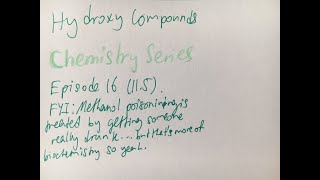 Hydroxy Compounds
Chemistry Series
Episode 16 (11.5)
FYI: Methanol poisoning is
treated by getting someone
really drunk... but that's more of
biochemistry so yeah.